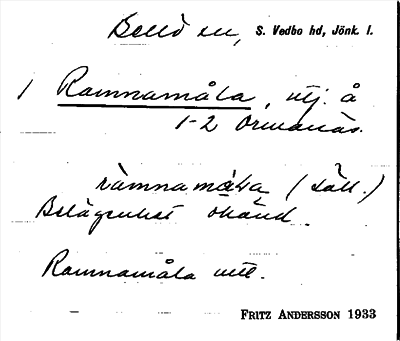 Bellö sn, S. Vedbo hd, Jönk. l.
1 Ramnamåla, utj. å
1-2 Ormanäs.
ràmnamá̊la (säll.)
Belägenhet okänd.
Ramnamåla utt.
FRITZ ANDERSSON 1933